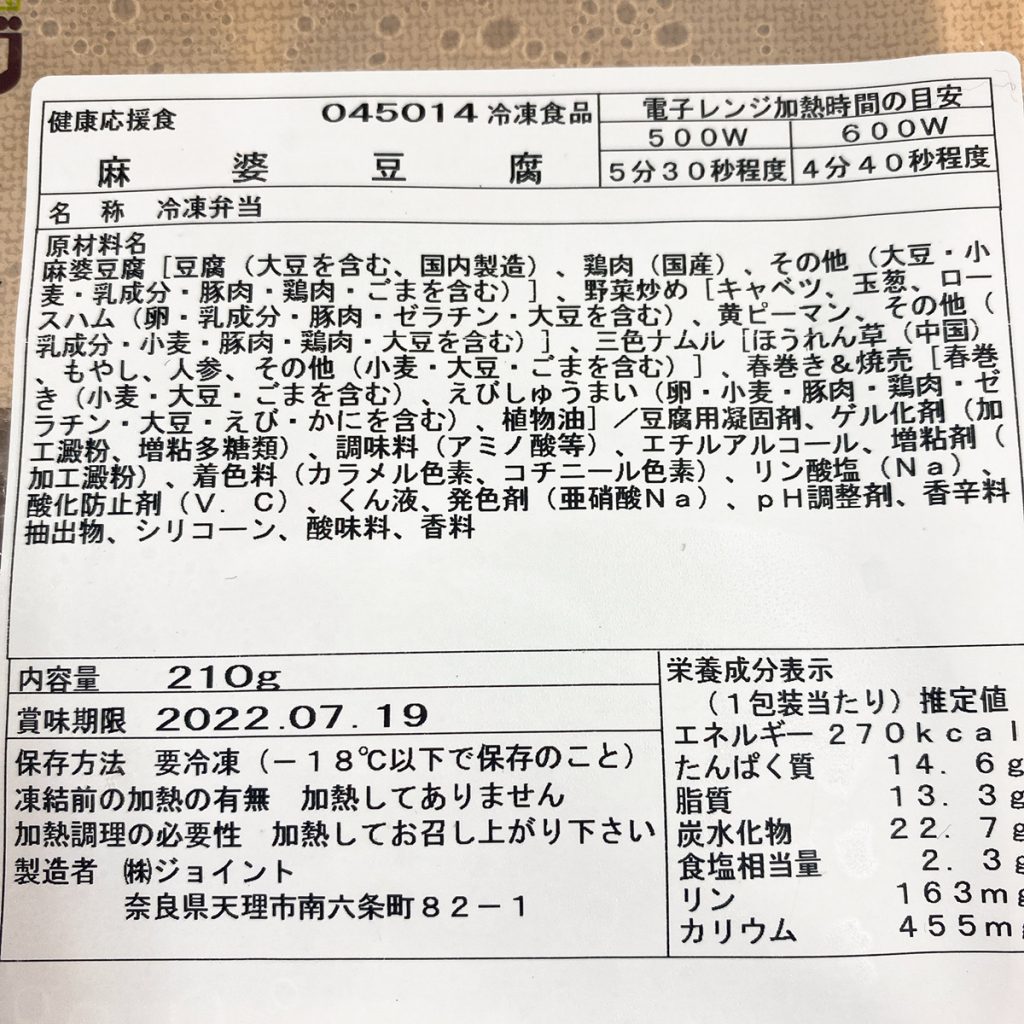 健康応援食 045014 冷凍食品
麻婆豆腐
電子レンジ加熱時間の目安
500W 600W
5分30秒程度 4分40秒程度
名 称 冷凍弁当
原材料名
麻婆豆腐[豆腐(大豆を含む、国内製造)、鶏肉(国産)、その他(大豆・小
麦・乳成分・豚肉・鶏肉・ごまを含む)]、野菜炒め[キャベツ、玉葱、ロー
スハム(卵・乳成分・豚肉・ゼラチン・大豆を含む)、黄ピーマン、その他(
乳成分・小麦・豚肉・鶏肉・大豆を含む)]、三色ナムル[ほうれん草(中国)
、もやし、人参、その他(小麦・大豆・ごまを含む)]、春巻き&焼売[春巻
き(小麦・大豆・ごまを含む)、えびしゅうまい(卵・小麦・豚肉・鶏肉・ゼ
ラチン・大豆・えび・かにを含む)、植物油]/豆腐用凝固剤、ゲル化剤(加
工澱粉、増粘多糖類)、調味料(アミノ酸等)、エチルアルコール、増粘剤(
加工澱粉)、着色料(カラメル色素、コチニール色素)、リン酸塩(Na)、
酸化防止剤(V.C)、くん液、発色剤(亜硝酸Na)、pH調整剤、香辛料
抽出物、シリコーン、酸味料、香料
内容量 210g
賞味期限 2022.07.19
保存方法 要冷凍(-18℃以下で保存のこと)
凍結前の加熱の有無 加熱してありません
加熱調理の必要性 加熱してお召し上がり下さい
製造者 ㈱ジョイント
奈良県天理市南六条町82-1
栄養成分表示
(1包装当たり)推定値
エネルギー 270kcal
たんぱく質 14.6g
脂質 13.3g
炭水化物 22.7g
食塩相当量 2.3g
リン 163mg
カリウム 455mg